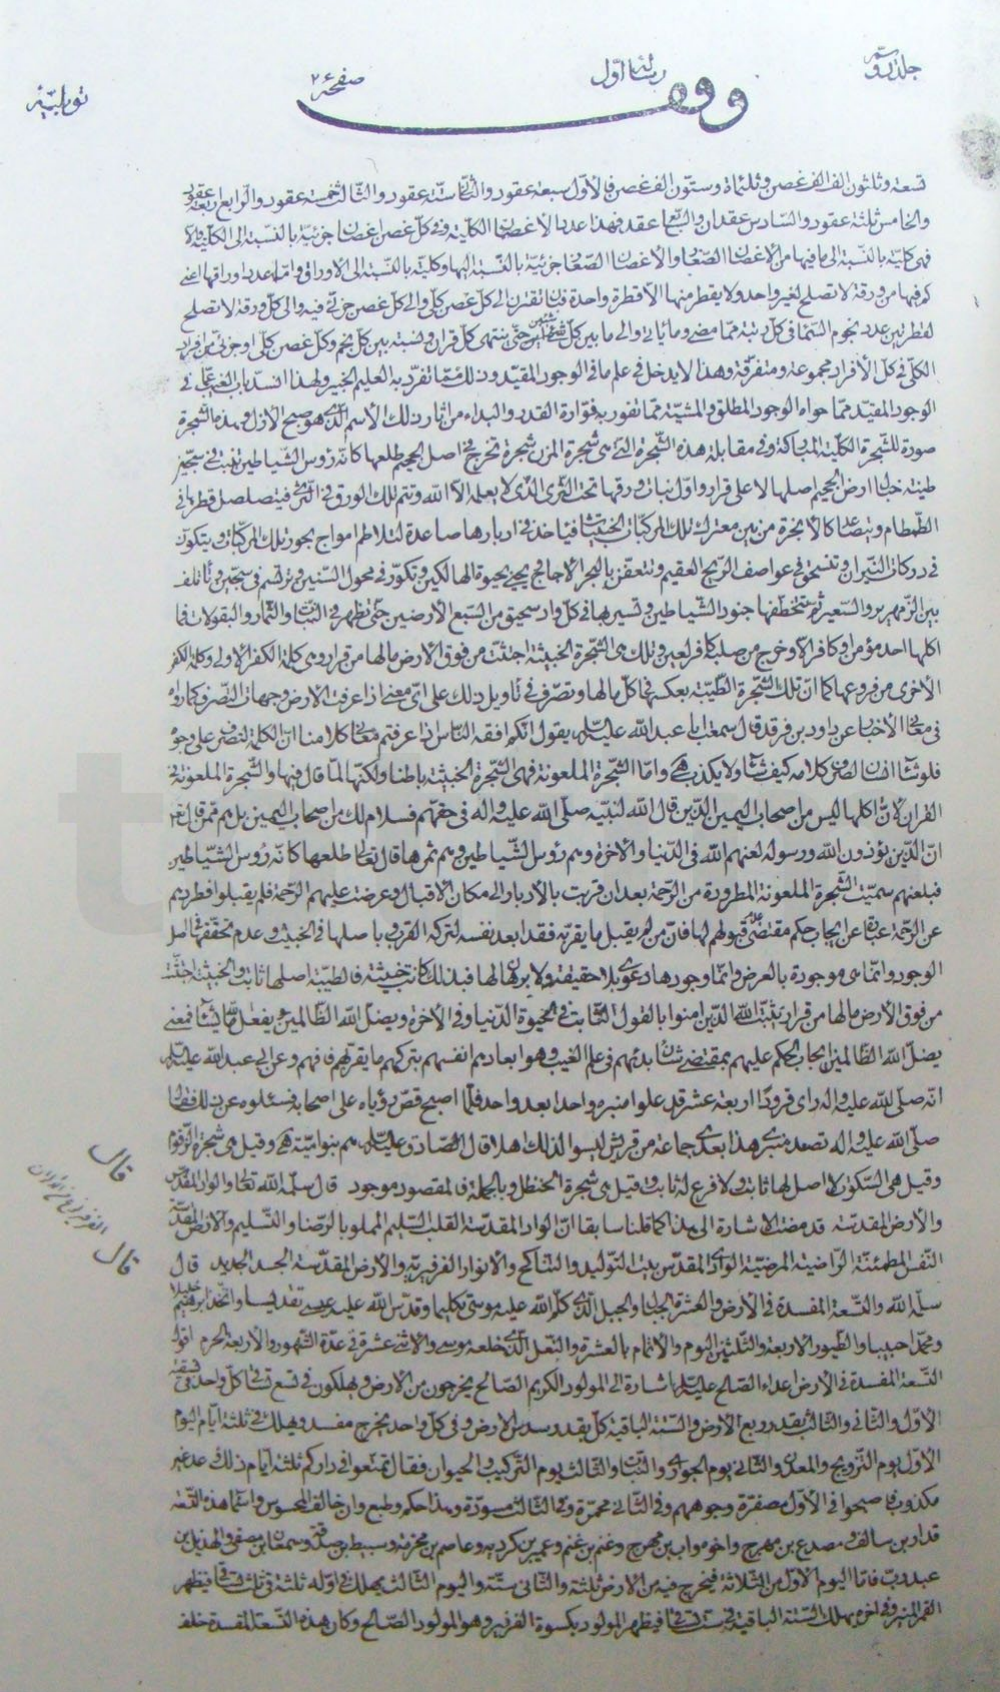 جلد دوّم
رسالة اوّل
صفحه ٢٤
توبلیّه
وقف
تسعة وثلثون الف الف غصن وثلثمائة وستّون الف غصن فالاوّل سبعة عقود والثانى ستّة عقود والثالث خمسة عقود والرابع اربعة عقود
والخامس ثلثة عقود والسّادس عقدان والسّابع عقد فهذا عدد الاغصان الكلّية وفى كلّ غصن اغصان جزئيّة بالنسبة الى الكلّية والا
فهى كليّة بالنّسبة الى ما فيها من الاغصان الصّغار والاغصان الصّغار جزئيّة بالنّسبة اليها وكليّة بالنّسبة الى الاوراق وامّا عدد اوراقها اعنى
كم فيها من ورقة لا تصلح لغير واحد ولا يقطر منها الا قطرة واحدة فان تقترن الى كلّ غصن كلّى والى كلّ غصن جزئى فيه والى كلّ ورقة لا تصلح
لقطرتين عدد نجوم السّماء فى كلّ رتبة ممّا مضى وما ياتى والى ما بين كلّ حتّى ينتهى كلّ قران ونسبة بين كلّ نجم وكلّ غصن كلّى او جزئى من افراد
الكلّى فى كلّ الافراد مجموعة ومتفرّقة وهذا لا يدخل فى علم ما فى الوجود المقيّد وذلك ممّا تفرّد به العليم الخبير ولهذا انسدّ باب الغيب عمّا فى
الوجود المقيّد ممّا حواه الوجود المطلق والمشيّة ممّا تفور به فوّارة القدر والبداء من اثار ذلك الاسم الّذى هو صبح الازل وهذه الشجرة
صورة للشجرة الكلّية المباركة وفى مقابلة هذه الشّجرة الّتى هى شجرة المزن شجرة تخرج فى اصل الجحيم طلعها كانّه رؤس الشّياطين نبتت فى سجّين
طينة خبال ارض الجحيم اصلها لا على قرار واوّل نبات ورقها تحت الثرى الّذى لا يعلمه الا الله وتتم تلك الورق فى الثرى فيتصلصل قطرها فى
الطّمطام وتتصاعد كالابخرة من بين معترك تلك المركّبات الخبيثة فياخذ فى ادبارها صاعدة لتلاطم امواج بحور تلك المركبات ويتكون
فى دركات النّيران وتنسحق فى عواصف الرّيح العقيم وتتعفّن بالبحر الاجاج يحيى بحيوة الهالكين وتكوّر فى محول السّنين وترتسم فى سجّين وتاتلف
بين الزّمهرير والسّعير ثم تتخطّفها جنود الشّياطين وتسير بها فى كلّ واد سحيق من السّبع الارضين حتّى تظهر فى النّبات والثمار والبقولات فما
اكلها احد مؤمن او كافر الّا وخرج من صلبه كافر لعين وتلك هى الشّجرة الخبيثة اجتثّت من فوق الارض ما لها من قرار وهى كلمة الكفر الاولى وكلمة الكفر
الاخرى من فروعها كما انّ تلك الشّجرة الطّيبة بعكسها فى كلّ ما لها وتصرّف فى تاويل ذلك على اىّ معنى اذا عرفت الارض وجهات التّصرّف كما رواه
فى معانى الاخبار عن داود بن فرقد قال سمعت ابا عبد الله عليه السّلام يقول انتم افقه النّاس اذا عرفتم معانى كلامنا انّ الكلمة لتصرف على وجوه
فلو شاء انسان لصرف كلامه كيف شاء ولا يكذب هى وامّا الشّجرة الملعونة فهى الشّجرة الخبيثة باطنا ولكنّها لمّا قال فيها والشّجرة الملعونة فى
القران لانّ اكلها ليس من اصحاب اليمين الّذين قال الله لنبيّه صلّى الله عليه واله فى حقّهم فسلام لك من اصحاب اليمين بل هم ممّن قال تعالى
انّ الّذين يؤذون الله ورسوله لعنهم الله فى الدّنيا والاخرة وهم رؤس الشّياطين وهم ثمرها قال تعالى طلعها كانّه رؤس الشّياطين
فبلعنهم سمّيت الشّجرة الملعونة المطرودة من الرّحمة بعد ان قربت بالادبار الى مكان الاقبال وعرضت عليهم الرّحمة فلم يقبلوا فطردهم
عن الرّحمة عبارة عن ايجاب حكم مقتضى عدم قبولهم لها فانّ من لم يقبل ما يقرّبه فقد ابعد نفسه لتركه القرب وباصلها فى الخبيث وعدم تحقّقها فى اصل
الوجود وانّما هى موجودة بالعرض وانّما وجودها دعوى بلا حقيقة ولا برهان لها فبذلك كانت خبيثة فالطيّبة اصلها ثابت والخبيثة اجتثّت
من فوق الارض ما لها من قرار يثبّت الله الّذين امنوا بالقول الثّابت فى الحيوة الدّنيا وفى الاخرة ويضلّ الله الظّالمين ويفعل الله ما يشاء فمعنى
يضلّ الله الظّالمين ايجاب الحكم عليهم بمقتضى شان بدئهم فى علم الغيب وهو ابعادهم انفسهم بتركهم ما يقرّبهم فافهم وعن ابى عبد الله عليه السّلام
انّه صلّى الله عليه واله راى قرودًا اربعة عشر قد علوا منبره واحدا بعد واحد فلمّا اصبح قصّ رؤياه على اصحابه فسئلوه عن ذلك فقال
صلّى الله عليه واله تصعد منبرى هذا بعدى جماعة من قريش ليسوا لذلك اهلا قال الصّادق عليه السّلام هم بنو اميّة هى وقيل هى شجرة الزّقوم
وقيل هى السّكوت لا اصل لها ثابت ولا فرع لها ثابت وقيل هى شجرة الحنظل وبالجملة فالمقصود موجود قال سلّمه الله تعالى والواد المقدّس
والارض المقدّسة قد مضت الاشارة الى هذا كما قلنا سابقا انّ الواد المقدّسة القلب السّليم المملو بالرّضا والتّسليم والارض المقدّسة
النّفس المطمئنّة الرّاضية المرضيّة الوادى المقدّس بيت التّوليد والتناكح والانوار الفرفيريّة والارض المقدّسة الجسد الجديد قال
سلّمه الله والتّسعة المفسدة فى الارض والعشرة الجبال والجبل الّذى كلّم الله عليه موسى تكليما وقدّس الله عليه عيسى تقديسا واتّخذ ابرهيم خليلا
ومحمّدا حبيبا والطّيور الاربعة والثّلثين اليوم والاتمام بالعشرة والنّعل الّذى خلعه موسى والاثنى عشرة فى عدّة الشّهور والاربعة الحرم اقول
التّسعة المفسدة فى الارض اعداء الصّالح عليه السّلام اشارة الى المولود الكريم الصّالح يخرجون من الارض ويهلكون فى تسع تساقى كلّ واحد فى تسقية
الاوّل والثّانى والثّالث بقدر ربع الارض والستّة الباقية كلّ بقدر سدس الارض وفى كلّ واحد يخرج مفسد ويهلك فى ثلثة ايّام اليوم
الاوّل يوم التّزويج والمعدن والثانى يوم الجوارى والنّبات والثالث يوم التّركيب والحيوان فقال تمتّعوا فى داركم ثلثة ايّام ذلك وعد غير
مكذوب فاصبحوا فى الاوّل مصفرّة وجوههم وفى الثّانى محمرّة وفى الثّالث مسودّة وهذا حكم وطبع وان خالف المحسوس واسماء هذه التّسعة
قدار بن سالف ومصدع بن مهرج واخوه واب بن مهرج وغنم بن غنم وعمير بن كردبه وعاصم بن مخرمة وسبيط بن صدقة وسمعان بن صفى والهذيل بن
عبد ربّ فامّا اليوم الاوّل من الثّلاثة فيخرج فيه من الارض ثلثة والثّانى ستّة واليوم الثّالث يهلك فى اوّله ثلثة فى ثلث تساقى فيظهر
القمر المنير وفى اخره يهلك السّتّة الباقية فى ستّ تساقى فيظهر المولود بكسوة الفرفير وهو المولود الصّالح وكان هذه التّسعة المفسدة خلف
قال
قال